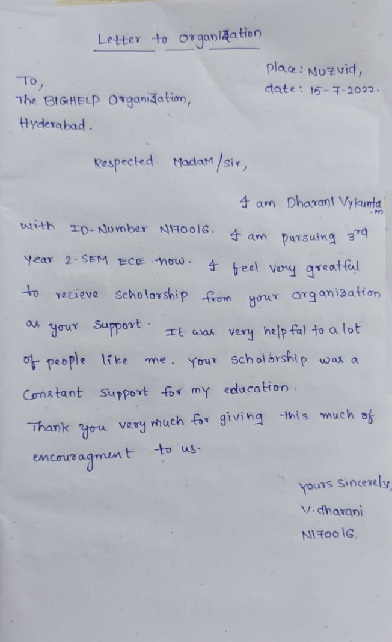 Letter to organization
Place: Nuzvid,
To,
date: 15-7-2022.
The BIGHELP Organization,
Hyderabad.
Respected Madam/Sir,
I am Dharani Vykunta
m
with ID-Number N170016. I am pursuing 3rd
year 2-SEM ECE now. I feel very greatful
to recieve scholarship from your organization
as your support. It was very helpful to a lot
of people like me. Your scholorship was a
constant support for my education.
Thank you very much for giving this much of
encouragment to us.
yours sincerely,
V.dharani
N170016.